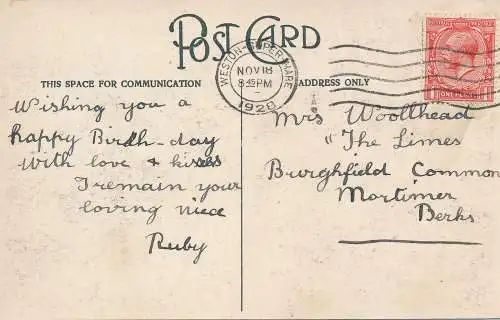 POST CARD
WESTON-SUPER-MARE
NOV 18
8:15 PM
1928
ONE PENNY
THIS SPACE FOR COMMUNICATION
ADDRESS ONLY
Wishing you a
happy Birth-day
with love & kisses
I remain your
loving niece
Ruby
Mrs Woolthead
"The Limes
Burghfield Common
Mortimer
Berks